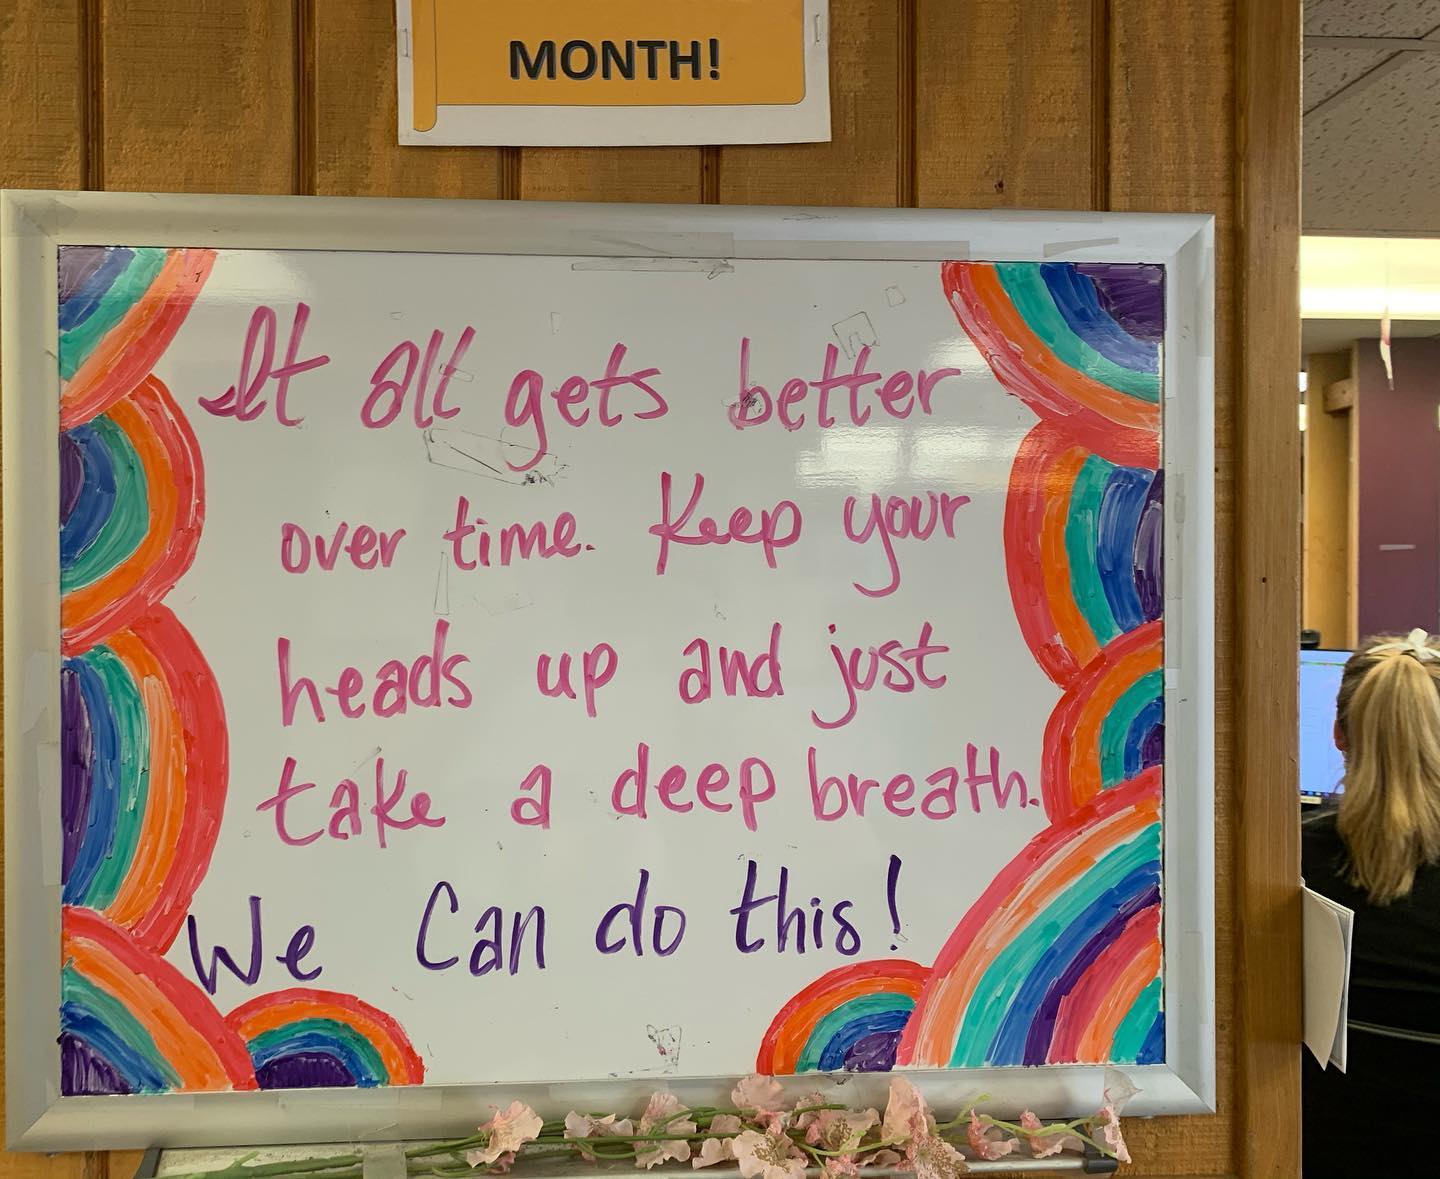 MONTH!
It all gets better
over time. Keep your
heads up and just
take a deep breath.
We Can do this!